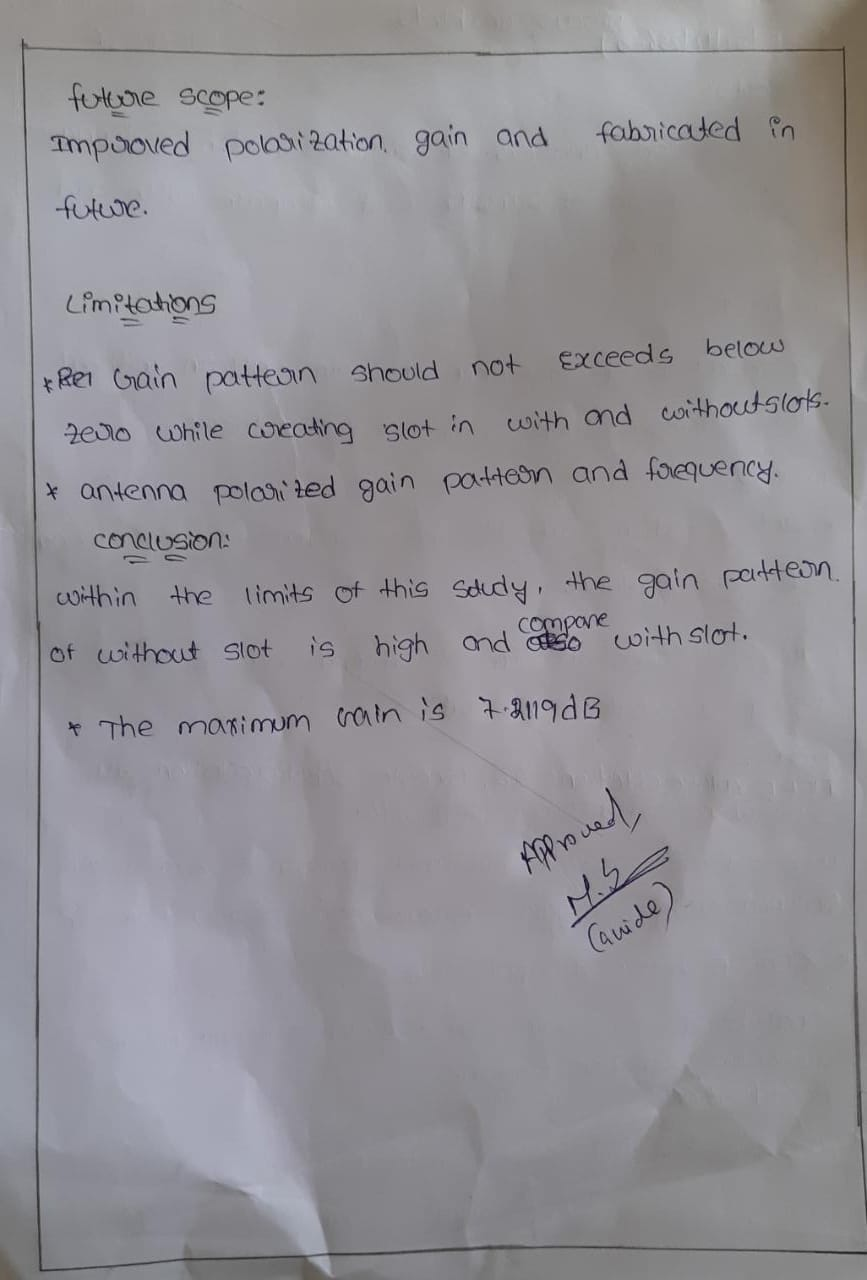 future scope:
Improved polarization, gain and fabricated in
future.
Limitations
* Gain pattern should not Exceeds below
zero while creating slot in with and without slots.
* antenna polarized gain pattern and frequency.
conclusion:
within the limits of this study, the gain pattern.
of without slot is high and compare with slot.
* The maximum Gain is 7.2119dB
Approved,
M.S
(Guide)